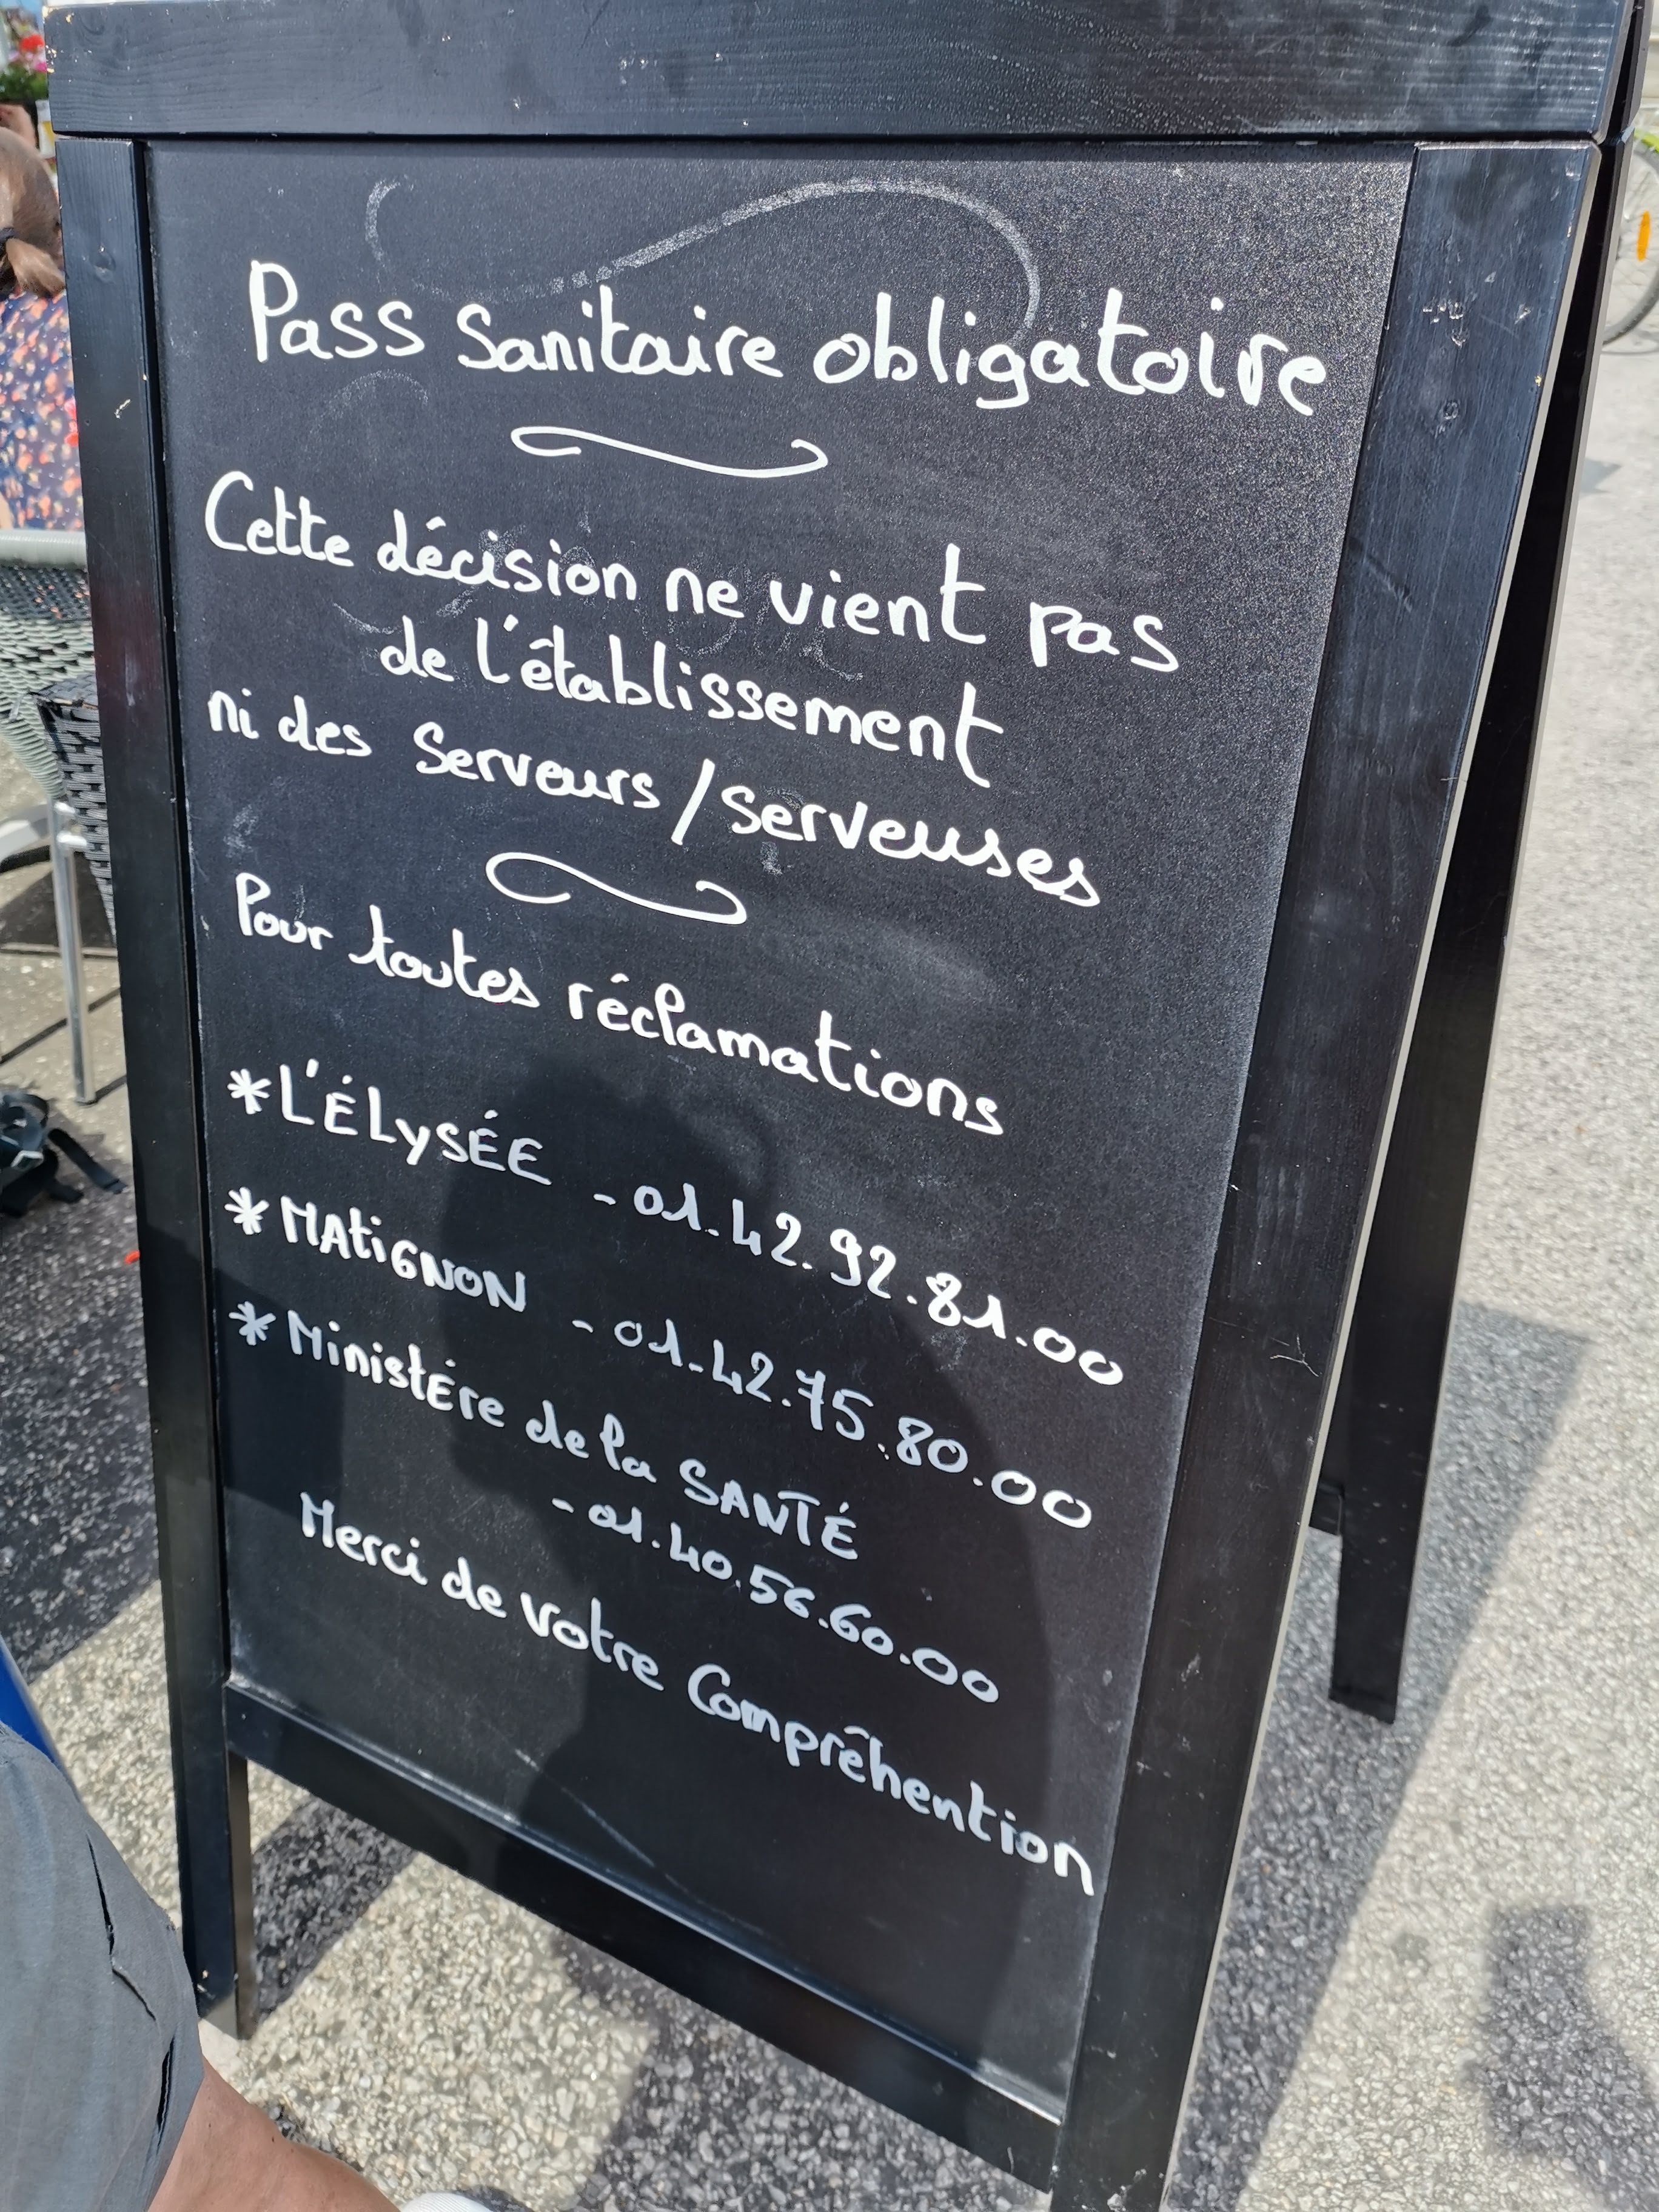 Pass Sanitaire obligatoire
Cette décision ne vient pas
de l'établissement
ni des Serveurs / Serveuses
Pour toutes réclamations
* L'ÉLySÉE - 01.42.92.81.00
* MAtiGNON - 01.42.75.80.00
* MinistÈre de la SANTÉ
- 01.40.56.60.00
Merci de votre Comprêhention